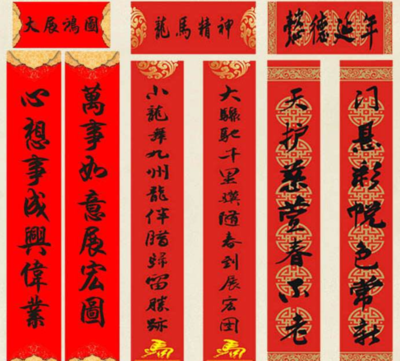 大展鴻圖
萬事如意展宏圖
心想事成興偉業
龍馬精神
大驥馳千里隨春到展宏図
小龍舞九州龍伴臘歸留勝跡
懿德延年
门悬彩帨色常新
天护慈萱春不老